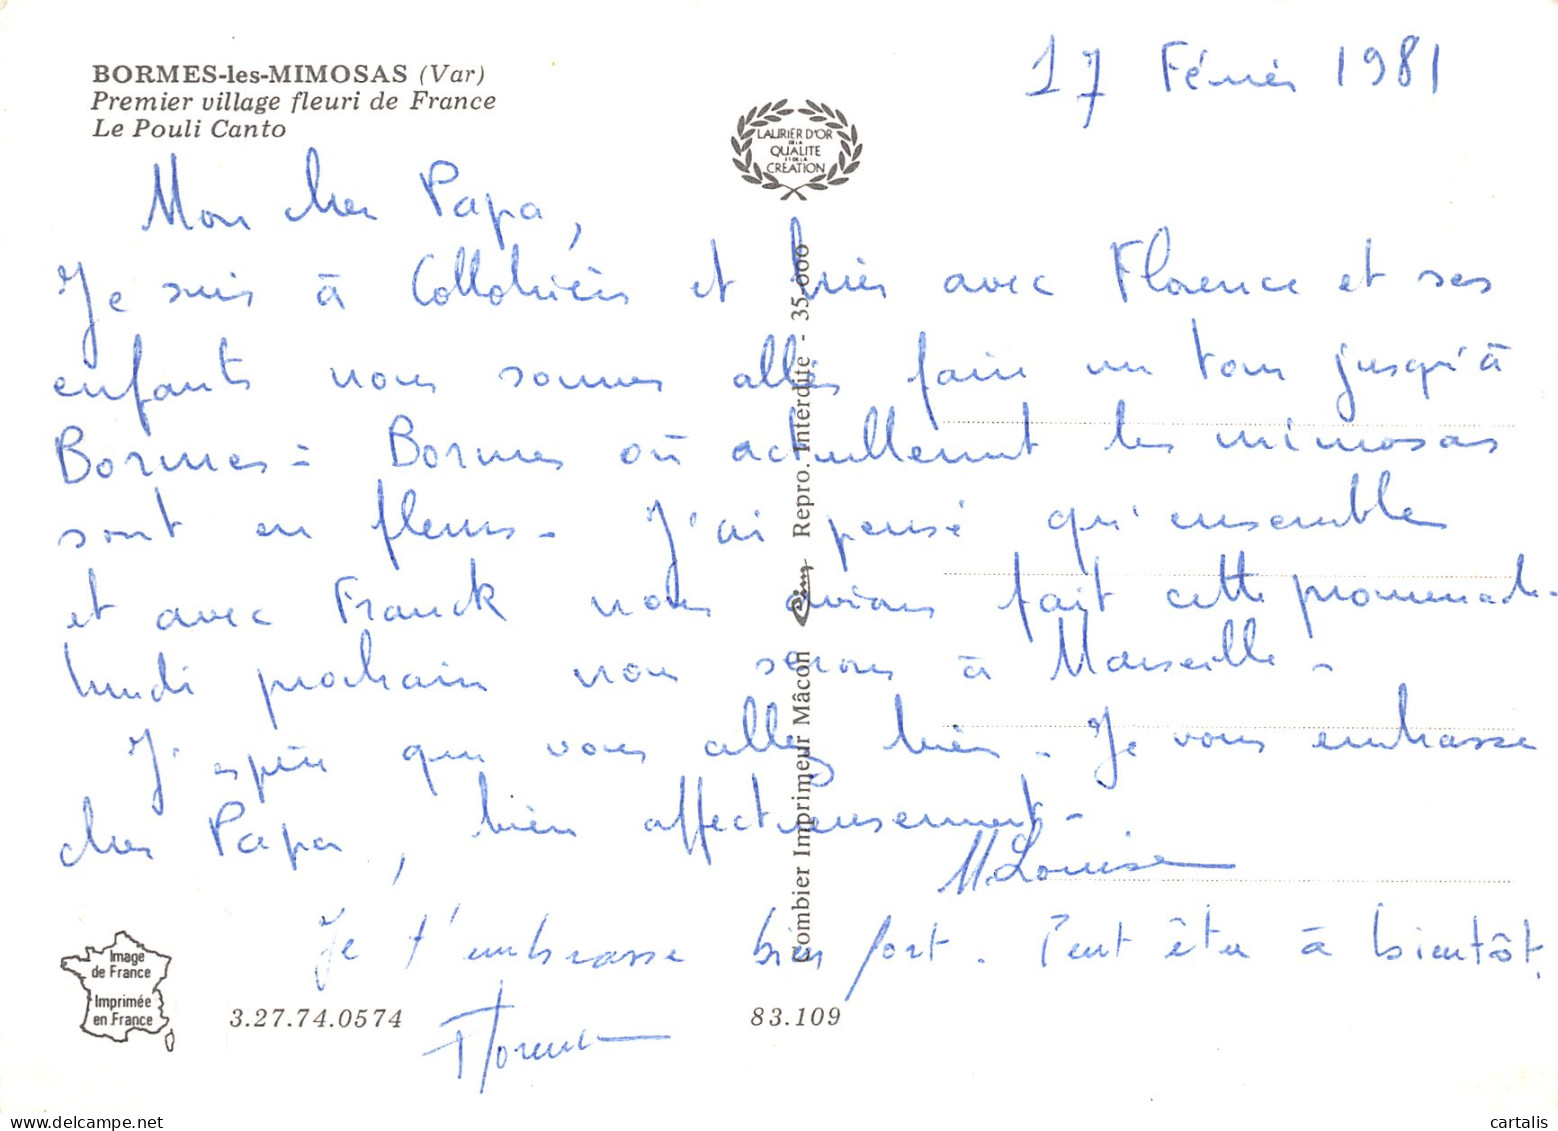 BORMES-les-MIMOSAS (Var)
Premier village fleuri de France
Le Pouli Canto
17 Février 1981
LAURIER D'OR
DE LA
QUALITE
ET DE LA
CRÉATION
Mon cher Papa,
Je suis à Collobrières et hier avec Florence et ses
enfants nous sommes allés faire un tour jusqu'à
Bormes - Bormes où actuellement les mimosas
sont en fleurs - J'ai pensé qu'ensembles
et avec Franck nous avions fait cette promenade -
lundi prochain nous serons à Marseille -
J'espère que vous allez bien - Je vous embrasse
cher Papa, bien affectueusement -
M. Louise
Je t'embrasse bien fort. Peut être à bientôt.
Florence
Combier Imprimeur Mâcon Cim Repro. Interdite - 35-000
Image
de France
Imprimée
en France
3.27.74.0574
83.109
cartalis